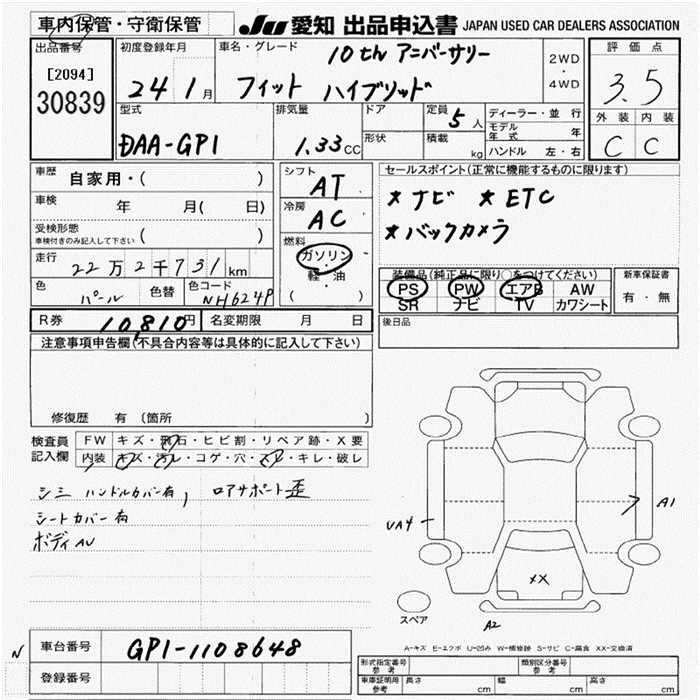 車内保管・守衛保管
JU 愛知 出品申込書 JAPAN USED CAR DEALERS ASSOCIATION
出品番号
[2094]
30839
初度登録年月
24 1月
車名・グレード
10th アニバーサリー
フィット ハイブリッド
2WD
・
4WD
評価点
3.5
外装 内装
C C
型式
DAA-GP1
排気量
1.33CC
ドア
形状
定員
5人
積載
kg
ディーラー・並行
モデル年式 年
ハンドル 左・右
車歴 自家用・( )
車検 年 月( 日)
受検形態
車検付きのみ記入して下さい ( )
走行 22万2千731km
色 パール 色替 色コード NH624P
シフト
AT
冷房
AC
燃料
ガソリン
・
軽・油
( )
セールスポイント(正常に機能するものに限ります)
★ナビ ★ETC
★バックカメラ
装備品(純正品に限り○をつけてください)
PS PW エアB AW
SR ナビ TV カワシート
新車保証書
有・無
R券 10,810円 名変期限 月 日
後日品
注意事項申告欄(不具合内容等は具体的に記入して下さい)
修復歴 有(箇所 )
検査員記入欄
FW キズ・飛石・ヒビ割・リペア跡・X要
内装 キズ・汚レ・コゲ・穴・スレ・キレ・破レ
シミ ハンドルカバー有, ロアサポート歪
シートカバー有
ボディAU
UA4
A1
XX
A2
スペア
A-キズ E-エクボ U-凹み W-補修跡 S-サビ C-腐食 XX-交換済
N
車台番号 GP1-1108648
登録番号
形式指定番号
参考
類別区分番号
参考
車庫証明用
参考
長さ cm 幅 cm 高さ cm